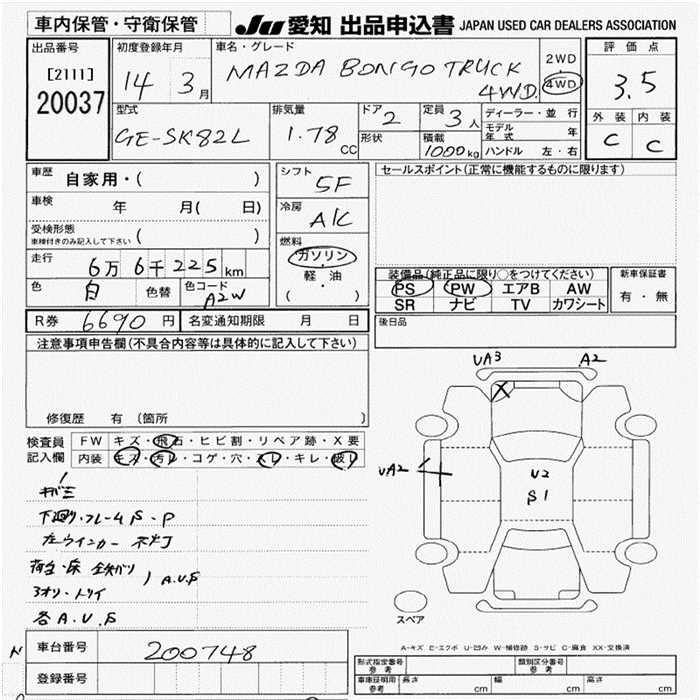 車内保管・守衛保管
JU 愛知 出品申込書 JAPAN USED CAR DEALERS ASSOCIATION
出品番号
[2111]
20037
初度登録年月
14 3月
車名・グレード
MAZDA BONGO TRUCK
4WD.
2WD
4WD
評価点
3.5
外装 内装
C C
型式
GE-SK82L
排気量
1.78
CC
ドア
2
形状
定員
3人
積載
1000kg
ディーラー・並行
モデル年式 年
ハンドル 左・右
車歴
自家用・( )
車検
年 月( 日)
受検形態
車検付きのみ記入して下さい ( )
走行
6万 6千 225km
色
白
色替
色コード
A2W
シフト
5F
冷房
A/C
燃料
ガソリン
・
軽・油
( )
セールスポイント(正常に機能するものに限ります)
装備品(純正品に限り○をつけてください)
PS PW エアB AW
SR ナビ TV カワシート
新車保証書
有・無
R券 6690円
名変通知期限 月 日
後日品
注意事項申告欄(不具合内容等は具体的に記入して下さい)
修復歴 有 〔箇所 〕
検査員
記入欄
FW キズ・飛石・ヒビ割・リペア跡・X要
内装 キズ・汚レ・コゲ・穴・スレ・キレ・破レ
下廻り・フレームS・P
左ウインカー 不灯
荷台・床
A.U.S
3オリ・トリイ
各A.U.S
UA3
A2
X
UA2
U2
S1
スペア
A-キズ E-エクボ U-凹み W-補修跡 S-サビ C-腐食 XX-交換済
N
車台番号
200748
登録番号
形式指定番号
参考
類別区分番号
参考
車庫証明用
参考
長さ cm
幅 cm
高さ cm